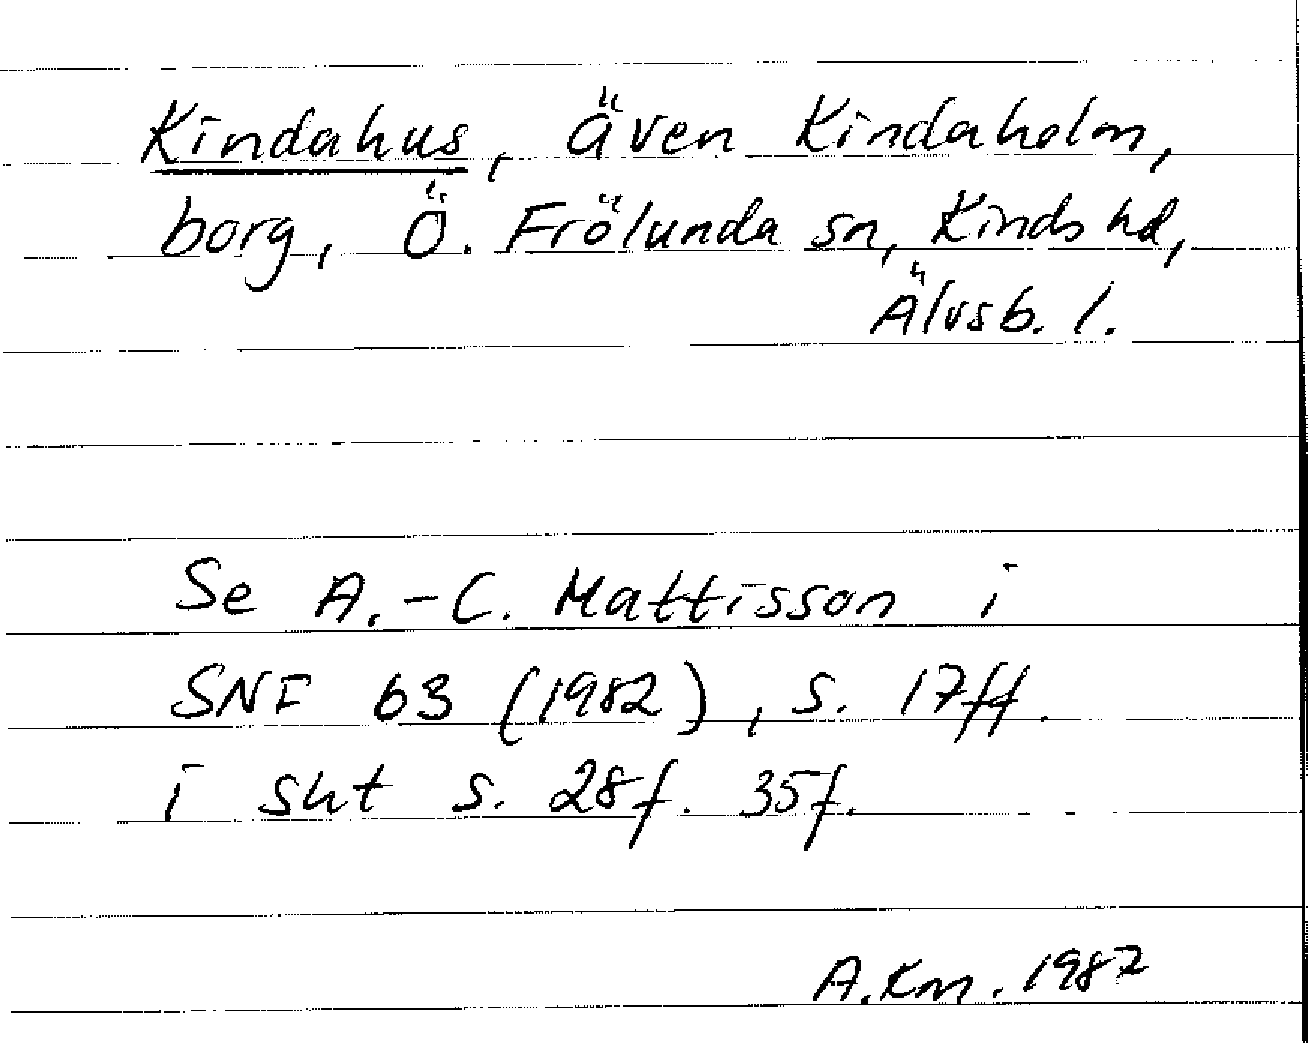 Kindahus, även Kindaholm,
borg, Ö. Frölunda sn, Kinds hd,
Älvsb. l.
Se A.-C. Mattisson i
SNF 63 (1982), s. 17ff.
i sht s. 28f. 35f.
A.Km. 1987